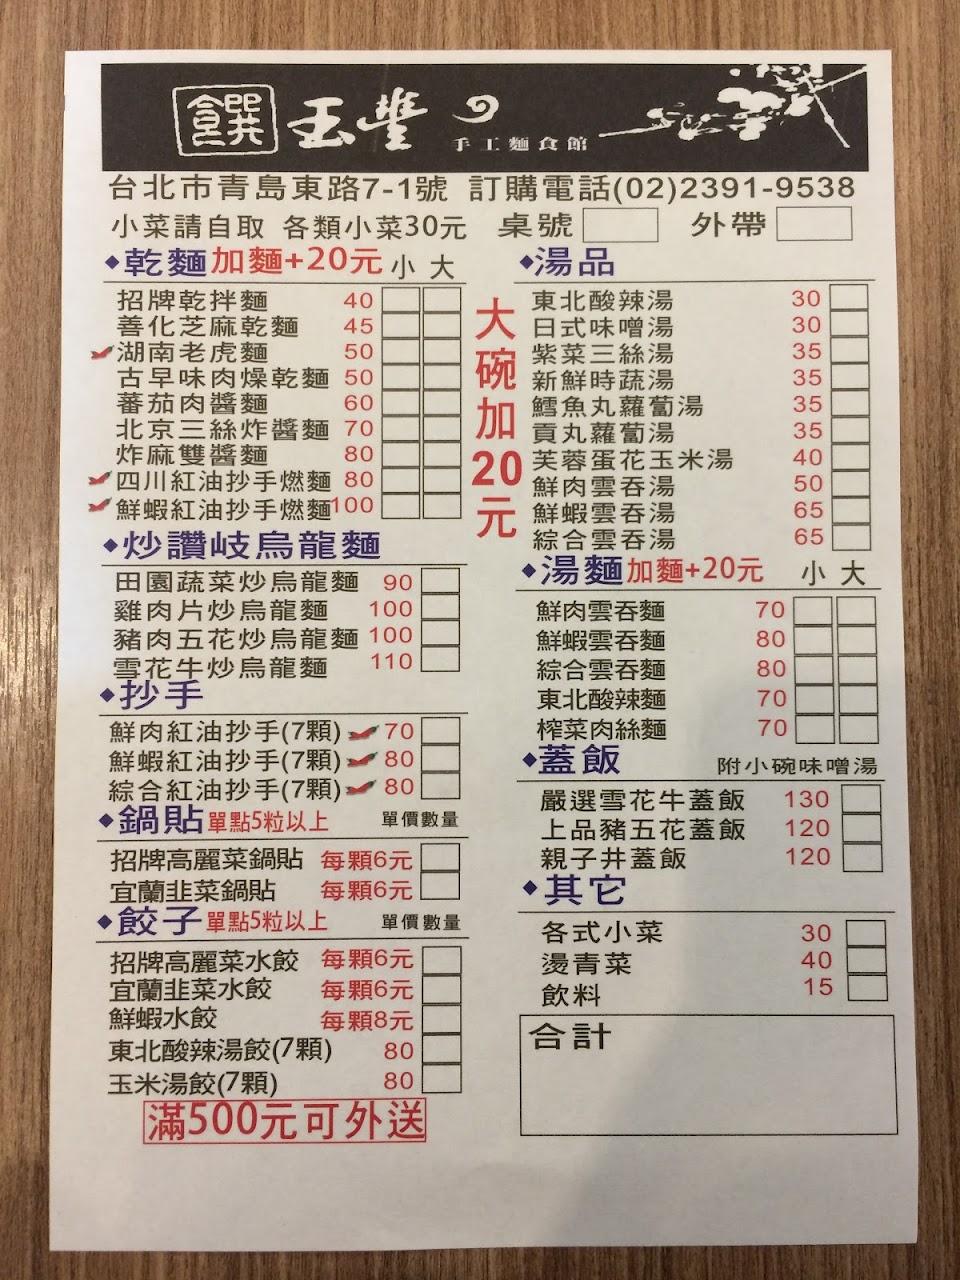 饌 玉豐
手工麵食館
台北市青島東路7-1號 訂購電話(02)2391-9538
小菜請自取 各類小菜30元 桌號 外帶
◆乾麵加麵+20元 小 大
招牌乾拌麵 40
善化芝麻乾麵 45
湖南老虎麵 50
古早味肉燥乾麵 50
蕃茄肉醬麵 60
北京三絲炸醬麵 70
炸麻雙醬麵 80
四川紅油抄手燃麵 80
鮮蝦紅油抄手燃麵100
◆炒讚岐烏龍麵
田園蔬菜炒烏龍麵 90
雞肉片炒烏龍麵 100
豬肉五花炒烏龍麵 100
雪花牛炒烏龍麵 110
◆抄手
鮮肉紅油抄手(7顆) 70
鮮蝦紅油抄手(7顆) 80
綜合紅油抄手(7顆) 80
◆鍋貼單點5粒以上 單價數量
招牌高麗菜鍋貼 每顆6元
宜蘭韭菜鍋貼 每顆6元
◆餃子單點5粒以上 單價數量
招牌高麗菜水餃 每顆6元
宜蘭韭菜水餃 每顆6元
鮮蝦水餃 每顆8元
東北酸辣湯餃(7顆) 80
玉米湯餃(7顆) 80
滿500元可外送
大碗加20元
◆湯品
東北酸辣湯 30
日式味噌湯 30
紫菜三絲湯 35
新鮮時蔬湯 35
鱈魚丸蘿蔔湯 35
貢丸蘿蔔湯 35
芙蓉蛋花玉米湯 40
鮮肉雲吞湯 50
鮮蝦雲吞湯 65
綜合雲吞湯 65
◆湯麵加麵+20元 小 大
鮮肉雲吞麵 70
鮮蝦雲吞麵 80
綜合雲吞麵 80
東北酸辣麵 70
榨菜肉絲麵 70
◆蓋飯 附小碗味噌湯
嚴選雪花牛蓋飯 130
上品豬五花蓋飯 120
親子丼蓋飯 120
◆其它
各式小菜 30
燙青菜 40
飲料 15
合計